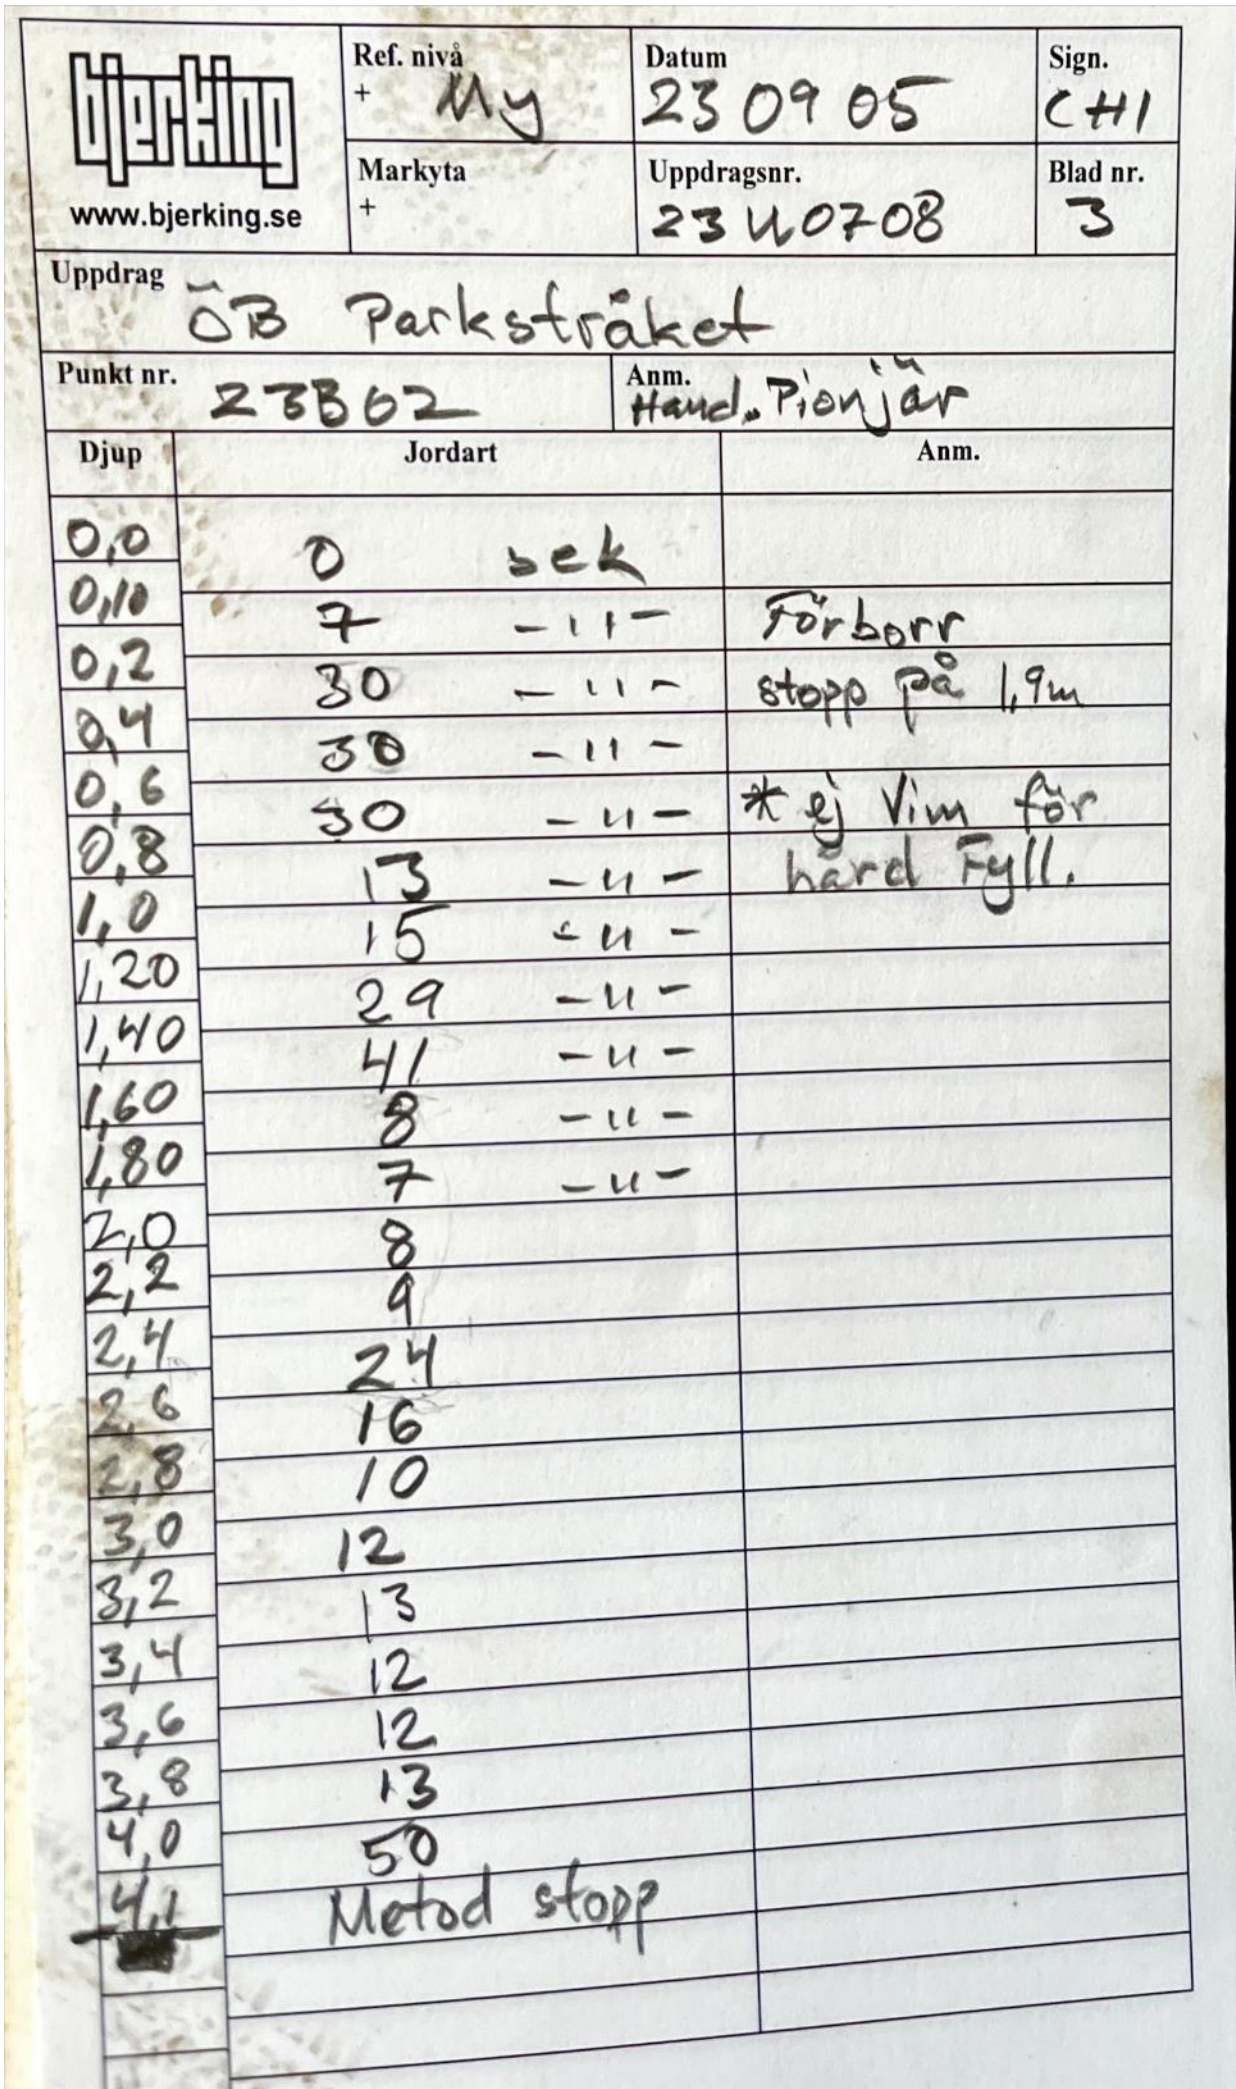 bjerking
www.bjerking.se
Ref. nivå
+ My
Datum
23 09 05
Sign.
CHI
Markyta
+
Uppdragsnr.
23U0708
Blad nr.
3
Uppdrag
ÖB Parkstråket
Punkt nr.
23B02
Anm.
Hand. Pionjär
Djup Jordart Anm.
0,0 0 sek
0,10 7 -"- Förborr
0,2 30 -"- stopp på 1,9m
0,4 30 -"-
0,6 30 -"- * ej Vim för
0,8 13 -"- hård Fyll.
1,0 15 -"-
1,20 29 -"-
1,40 41 -"-
1,60 8 -"-
1,80 7 -"-
2,0 8
2,2 9
2,4 24
2,6 16
2,8 10
3,0 12
3,2 13
3,4 12
3,6 12
3,8 13
4,0 50
4,1 Metod stopp